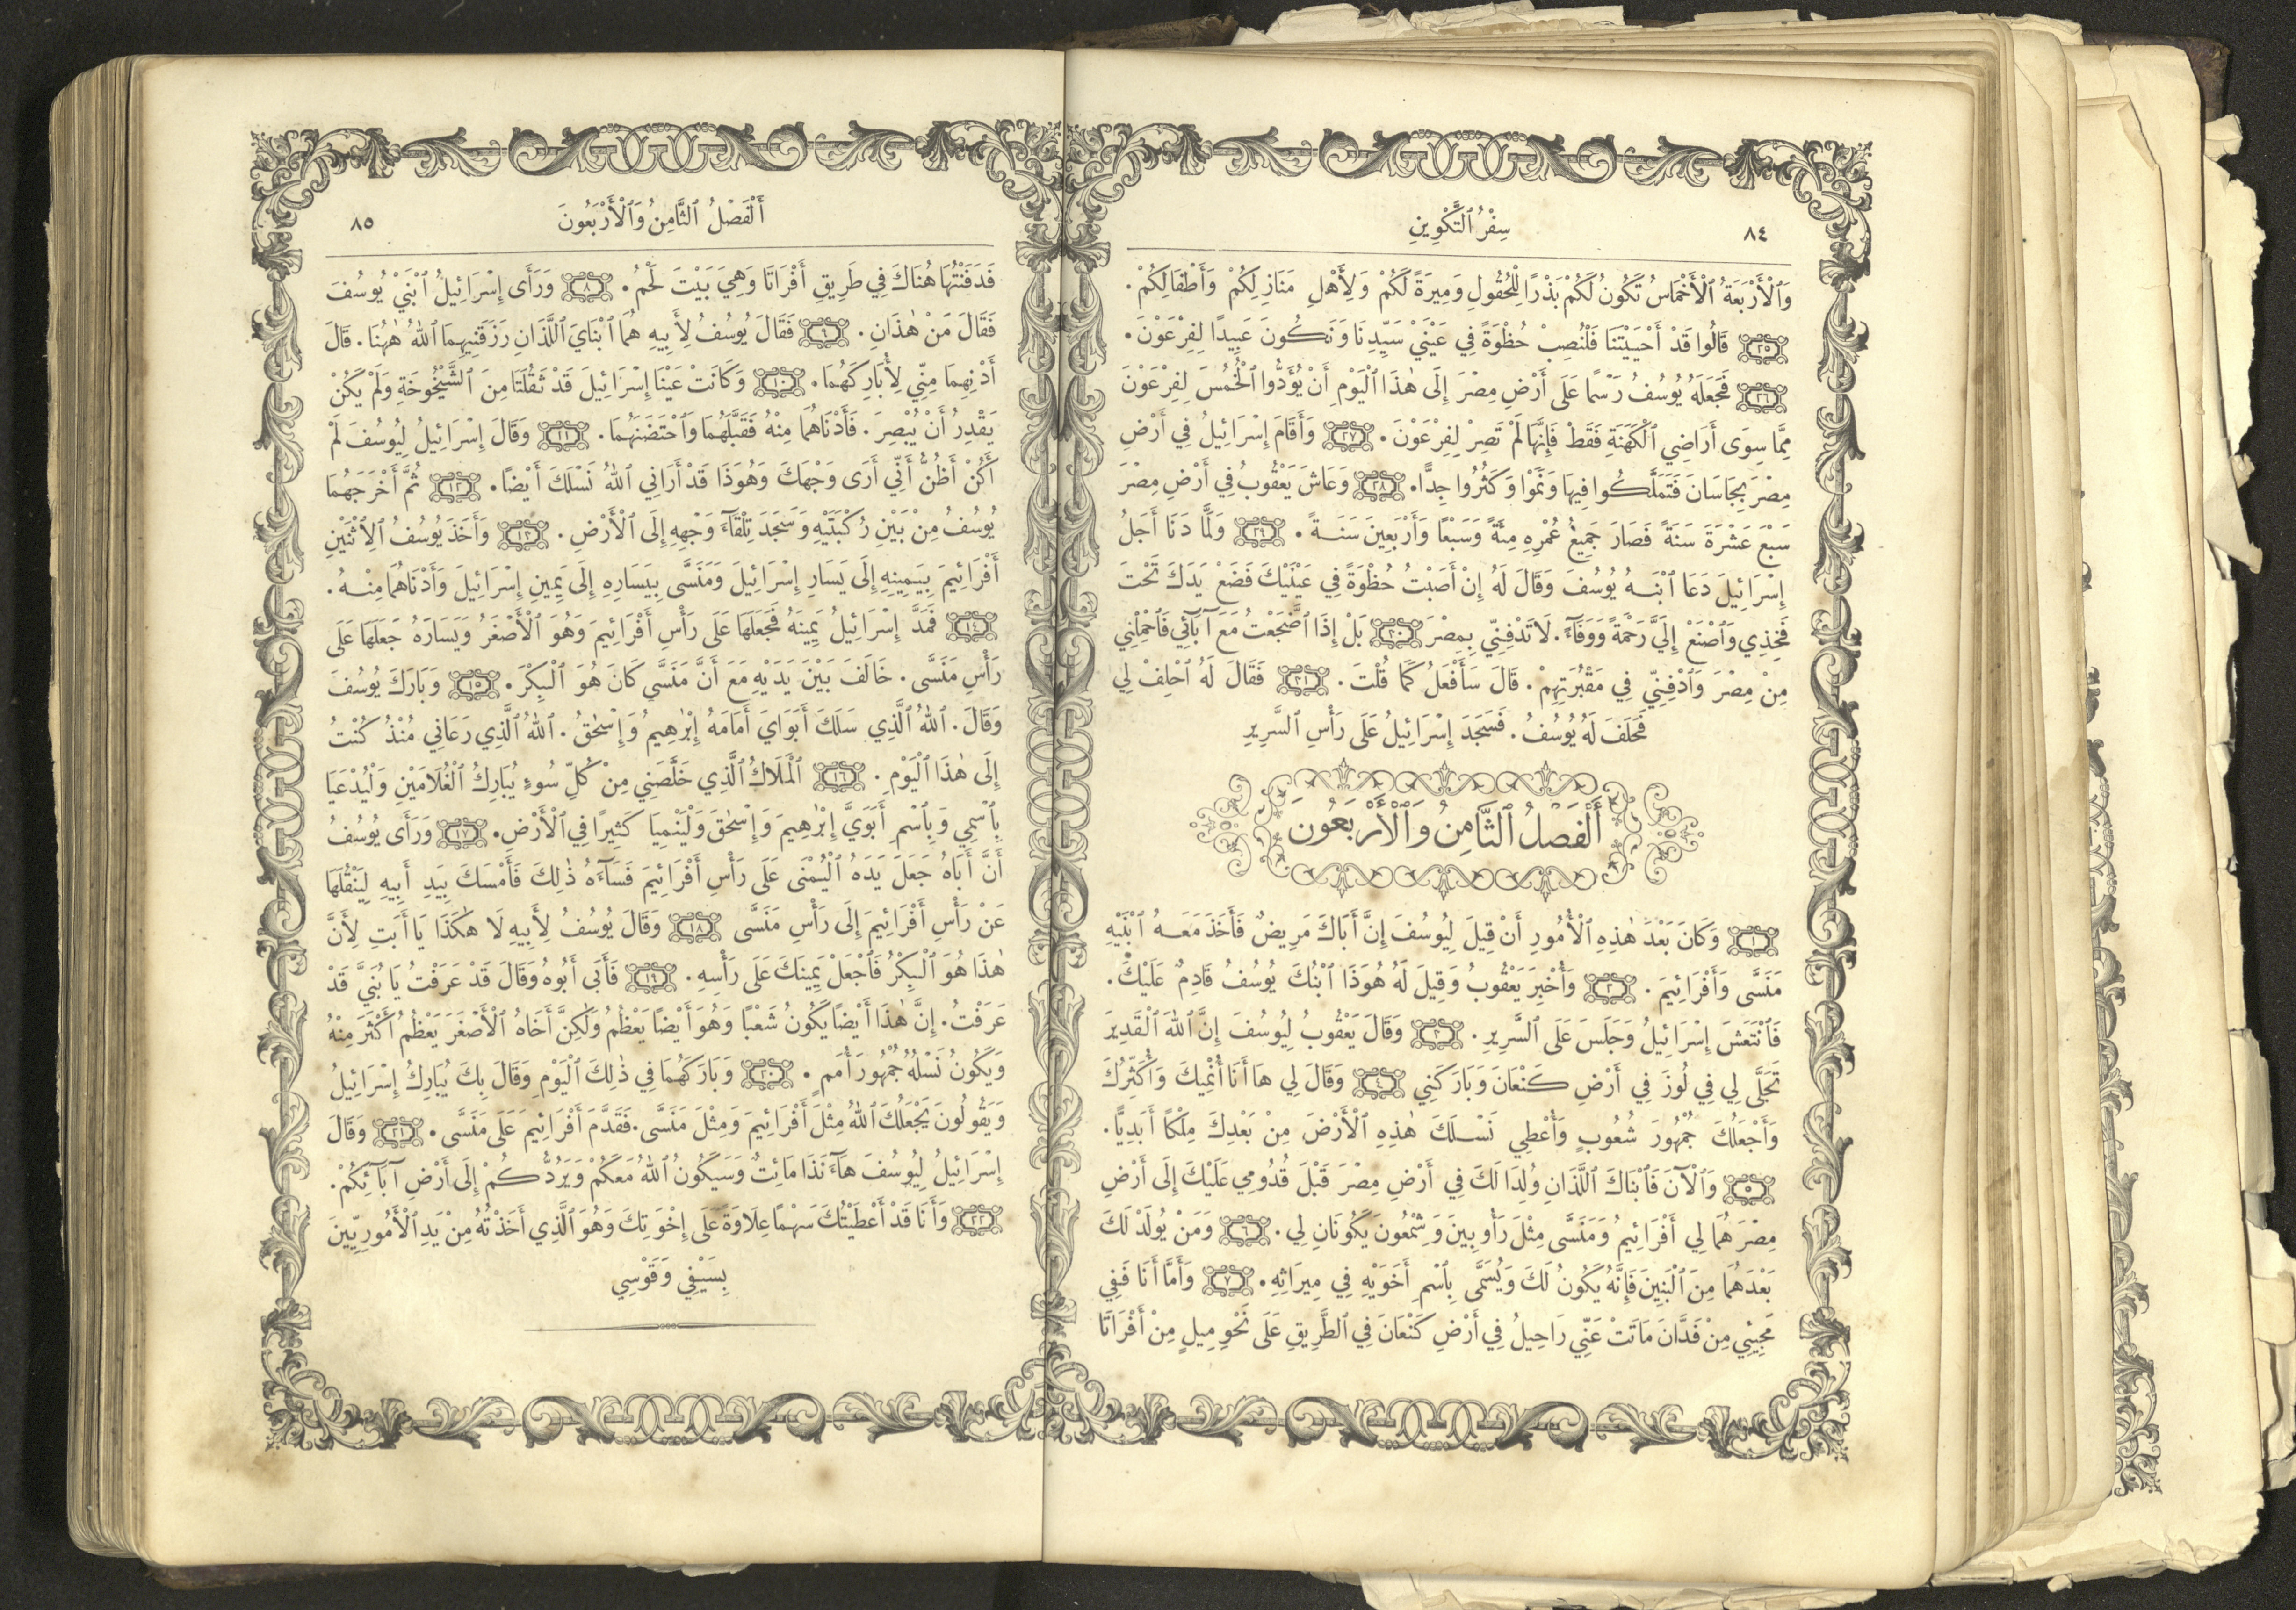 ٨٤
سِفْرُ ٱلتَّكْوِينِ
وَٱلْأَرْبَعَةُ ٱلْأَخْمَاسُ تَكُونُ لَكُمْ بَذْرًا لِلْحُقُولِ وَمِيرَةً لَكُمْ وَلِأَهْلِ مَنَازِلِكُمْ وَأَطْفَالِكُمْ.
٢٥ قَالُوا قَدْ أَحْيَيْتَنَا فَلْنُصِبْ حُظْوَةً فِي عَيْنَيْ سَيِّدِنَا وَنَكُونَ عَبِيدًا لِفِرْعَوْنَ.
٢٦ فَجَعَلَهُ يُوسُفُ رَسْمًا عَلَى أَرْضِ مِصْرَ إِلَى هٰذَا ٱلْيَوْمِ أَنْ يُؤَدُّوا ٱلْخُمْسَ لِفِرْعَوْنَ
مِمَّا سِوَى أَرَاضِي ٱلْكَهَنَةِ فَقَطْ فَإِنَّهَا لَمْ تَصِرْ لِفِرْعَوْنَ. ٢٧ وَأَقَامَ إِسْرَائِيلُ فِي أَرْضِ
مِصْرَ بِجَاسَانَ فَتَمَلَّكُوا فِيهَا وَنَمَوْا وَكَثُرُوا جِدًّا. ٢٨ وَعَاشَ يَعْقُوبُ فِي أَرْضِ مِصْرَ
سَبْعَ عَشْرَةَ سَنَةً فَصَارَ جَمِيعُ عُمْرِهِ مِئَةً وَسَبْعًا وَأَرْبَعِينَ سَنَةً. ٢٩ وَلَمَّا دَنَا أَجَلُ
إِسْرَائِيلَ دَعَا ٱبْنَهُ يُوسُفَ وَقَالَ لَهُ إِنْ أَصَبْتُ حُظْوَةً فِي عَيْنَيْكَ فَضَعْ يَدَكَ تَحْتَ
فَخِذِي وَٱصْنَعْ إِلَيَّ رَحْمَةً وَوَفَآءً. لَا تَدْفِنِّي بِمِصْرَ ٣٠ بَلْ إِذَا ٱضْطَجَعْتُ مَعَ آبَآئِي فَٱحْمِلْنِي
مِنْ مِصْرَ وَٱدْفِنِّي فِي مَقْبُرَتِهِمْ. قَالَ سَأَفْعَلُ كَمَا قُلْتَ. ٣١ فَقَالَ لَهُ ٱحْلِفْ لِي
فَحَلَفَ لَهُ يُوسُفُ. فَسَجَدَ إِسْرَائِيلُ عَلَى رَأْسِ ٱلسَّرِيرِ
أَلْفَصْلُ ٱلثَّامِنُ وَٱلْأَرْبَعُونَ
١ وَكَانَ بَعْدَ هٰذِهِ ٱلْأُمُورِ أَنْ قِيلَ لِيُوسُفَ إِنَّ أَبَاكَ مَرِيضٌ فَأَخَذَ مَعَهُ ٱبْنَيْهِ
مَنَسَّى وَأَفْرَائِيمَ. ٢ وَأُخْبِرَ يَعْقُوبُ وَقِيلَ لَهُ هُوَذَا ٱبْنُكَ يُوسُفُ قَادِمٌ عَلَيْكَ.
فَٱنْتَعَشَ إِسْرَائِيلُ وَجَلَسَ عَلَى ٱلسَّرِيرِ. ٣ وَقَالَ يَعْقُوبُ لِيُوسُفَ إِنَّ ٱللهَ ٱلْقَدِيرَ
تَجَلَّى لِي فِي لُوزَ فِي أَرْضِ كَنْعَانَ وَبَارَكَنِي ٤ وَقَالَ لِي هَا أَنَا أُنْمِيكَ وَأُكَثِّرُكَ
وَأَجْعَلُكَ جُمْهُورَ شُعُوبٍ وَأُعْطِي نَسْلَكَ هٰذِهِ ٱلْأَرْضَ مِنْ بَعْدِكَ مِلْكًا أَبَدِيًّا.
٥ وَٱلْآنَ فَٱبْنَاكَ ٱللَّذَانِ وُلِدَا لَكَ فِي أَرْضِ مِصْرَ قَبْلَ قُدُومِي عَلَيْكَ إِلَى أَرْضِ
مِصْرَ هُمَا لِي أَفْرَائِيمُ وَمَنَسَّى مِثْلَ رَأُوبِينَ وَشِمْعُونَ يَكُونَانِ لِي. ٦ وَمَنْ يُولَدْ لَكَ
بَعْدَهُمَا مِنَ ٱلْبَنِينَ فَإِنَّهُ يَكُونُ لَكَ وَيُسَمَّى بِٱسْمِ أَخَوَيْهِ فِي مِيرَاثِهِ. ٧ وَأَمَّا أَنَا فَفِي
مَجِيئِي مِنْ فَدَّانَ مَاتَتْ عَنِّي رَاحِيلُ فِي أَرْضِ كَنْعَانَ فِي ٱلطَّرِيقِ عَلَى نَحْوِ مِيلٍ مِنْ أَفْرَاتَا
أَلْفَصْلُ ٱلثَّامِنُ وَٱلْأَرْبَعُونَ
٨٥
فَدَفَنْتُهَا هُنَاكَ فِي طَرِيقِ أَفْرَاتَا وَهِيَ بَيْتَ لَحْمُ. ٨ وَرَأَى إِسْرَائِيلُ ٱبْنَيْ يُوسُفَ
فَقَالَ مَنْ هٰذَانِ. ٩ فَقَالَ يُوسُفُ لِأَبِيهِ هُمَا ٱبْنَايَ ٱللَّذَانِ رَزَقَنِيهِمَا ٱللهُ هٰهُنَا. قَالَ
أَدْنِهِمَا مِنِّي لِأُبَارِكَهُمَا. ١٠ وَكَانَتْ عَيْنَا إِسْرَائِيلَ قَدْ ثَقُلَتَا مِنَ ٱلشَّيْخُوخَةِ وَلَمْ يَكُنْ
يَقْدِرُ أَنْ يُبْصِرَ. فَأَدْنَاهُمَا مِنْهُ فَقَبَّلَهُمَا وَٱحْتَضَنَهُمَا. ١١ وَقَالَ إِسْرَائِيلُ لِيُوسُفَ لَمْ
أَكُنْ أَظُنُّ أَنِّي أَرَى وَجْهَكَ وَهُوَذَا قَدْ أَرَانِي ٱللهُ نَسْلَكَ أَيْضًا. ١٢ ثُمَّ أَخْرَجَهُمَا
يُوسُفُ مِنْ بَيْنِ رُكْبَتَيْهِ وَسَجَدَ تِلْقَآءَ وَجْهِهِ إِلَى ٱلْأَرْضِ. ١٣ وَأَخَذَ يُوسُفُ ٱلِٱثْنَيْنِ
أَفْرَائِيمَ بِيَمِينِهِ إِلَى يَسَارِ إِسْرَائِيلَ وَمَنَسَّى بِيَسَارِهِ إِلَى يَمِينِ إِسْرَائِيلَ وَأَدْنَاهُمَا مِنْهُ.
١٤ فَمَدَّ إِسْرَائِيلُ يَمِينَهُ فَجَعَلَهَا عَلَى رَأْسِ أَفْرَائِيمَ وَهُوَ ٱلْأَصْغَرُ وَيَسَارَهُ جَعَلَهَا عَلَى
رَأْسِ مَنَسَّى. خَالَفَ بَيْنَ يَدَيْهِ مَعَ أَنَّ مَنَسَّى كَانَ هُوَ ٱلْبِكْرَ. ١٥ وَبَارَكَ يُوسُفَ
وَقَالَ. ٱللهُ ٱلَّذِي سَلَكَ أَبَوَايَ أَمَامَهُ إِبْرٰهِيمُ وَإِسْحٰقُ. ٱللهُ ٱلَّذِي رَعَانِي مُنْذُ كُنْتُ
إِلَى هٰذَا ٱلْيَوْمِ. ١٦ ٱلْمَلَاكُ ٱلَّذِي خَلَّصَنِي مِنْ كُلِّ سُوءٍ يُبَارِكُ ٱلْغُلَامَيْنِ وَلْيُدْعَيَا
بِٱسْمِي وَبِٱسْمِ أَبَوَيَّ إِبْرٰهِيمَ وَإِسْحٰقَ وَلْيَنْمِيَا كَثِيرًا فِي ٱلْأَرْضِ. ١٧ وَرَأَى يُوسُفُ
أَنَّ أَبَاهُ جَعَلَ يَدَهُ ٱلْيُمْنَى عَلَى رَأْسِ أَفْرَائِيمَ فَسَآءَهُ ذٰلِكَ فَأَمْسَكَ بِيَدِ أَبِيهِ لِيَنْقُلَهَا
عَنْ رَأْسِ أَفْرَائِيمَ إِلَى رَأْسِ مَنَسَّى ١٨ وَقَالَ يُوسُفُ لِأَبِيهِ لَا هٰكَذَا يَا أَبَتِ لِأَنَّ
هٰذَا هُوَ ٱلْبِكْرُ فَٱجْعَلْ يَمِينَكَ عَلَى رَأْسِهِ. ١٩ فَأَبَى أَبُوهُ وَقَالَ قَدْ عَرَفْتُ يَا بُنَيَّ قَدْ
عَرَفْتُ. إِنَّ هٰذَا أَيْضًا يَكُونُ شَعْبًا وَهُوَ أَيْضًا يَعْظُمُ وَلٰكِنَّ أَخَاهُ ٱلْأَصْغَرَ يَعْظُمُ أَكْثَرَ مِنْهُ
وَيَكُونُ نَسْلُهُ جُمْهُورَ أُمَمٍ. ٢٠ وَبَارَكَهُمَا فِي ذٰلِكَ ٱلْيَوْمِ وَقَالَ بِكَ يُبَارِكُ إِسْرَائِيلُ
وَيَقُولُونَ يَجْعَلُكَ ٱللهُ مِثْلَ أَفْرَائِيمَ وَمِثْلَ مَنَسَّى. فَقَدَّمَ أَفْرَائِيمَ عَلَى مَنَسَّى. ٢١ وَقَالَ
إِسْرَائِيلُ لِيُوسُفَ هَآءَنَذَا مَائِتٌ وَسَيَكُونُ ٱللهُ مَعَكُمْ وَيَرُدُّكُمْ إِلَى أَرْضِ آبَآئِكُمْ.
٢٢ وَأَنَا قَدْ أَعْطَيْتُكَ سَهْمًا عِلَاوَةً عَلَى إِخْوَتِكَ وَهُوَ ٱلَّذِي أَخَذْتُهُ مِنْ يَدِ ٱلْأَمُورِيِّينَ
بِسَيْفِي وَقَوْسِي